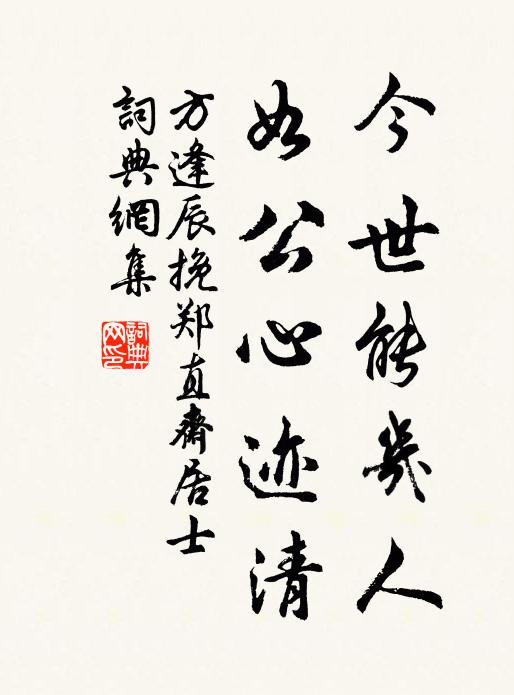 今世能幾人
如公心迹清
方逢辰挽郑直齋居士
詞典網集
詞典網印